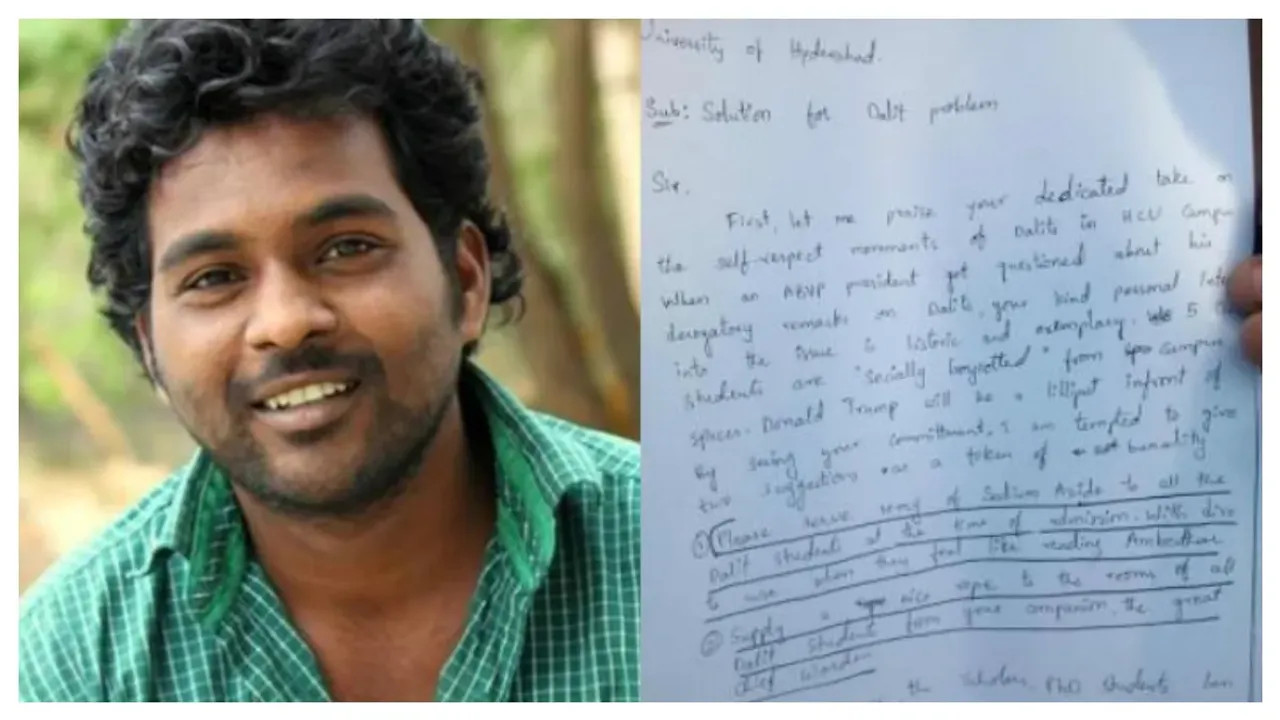 University of Hyderabad.
Sub: Solution for Dalit problem
Sir,
First, let me praise your dedicated take on
the self-respect movements of Dalits in HCU Campu
When an ABVP president got questioned about his
derogatory remarks on Dalits, your kind personal Inte
into the issue is historic and exemplary. 5
students are "socially boycotted" from campus
spaces. Donald Trump will be a lilliput infront of
By seeing your committment, I am tempted to give
two suggestions as a token of banality
① Please serve 10mg of Sodium Azide to all the
Dalit students at the time of admission. With dire
to use when they feel like reading Ambedkar
② Supply a nice rope to the rooms of all
Dalit students from your companion, the great
Chief Warden
the scholars, PhD students